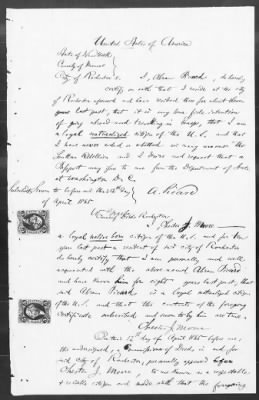 United States of America
State of New York
County of Monroe
City of Rochester ss. I, Abram Picard, do hereby
certify on oath that I reside at the city
of Rochester aforesaid and have resided there for about eleven
years last past, that it is my bona fide intention
of going abroad and traveling in Europe, that I am
a loyal naturalized citizen of the U.S. and that
I have never aided or abetted in any manner the
Southern Rebellion and I desire and request that a
Passport may issue to me from the Department of State
at Washington D.C.
Subscribed & sworn to before me this 12th day
of April 1865
A. Picard
Chester J. Moore
a loyal native born citizen of the U.S. and for
years last past a resident of said city of Rochester
do hereby certify that I am personally and well
acquainted with the above named Abram Picard
and have known him for eight years last past, that
Abram Picard is a loyal naturalized citizen
of the U.S. and that the contents of the foregoing
certificate subscribed and sworn to by him are true.
Chester J. Moore
On this 12th day of April 1865 before me,
the undersigned, a Commissioner of Deeds in and for
said city of Rochester, personally appeared before
Chester J. Moore, to me known as a respectable
citizen and made oath that the foregoing